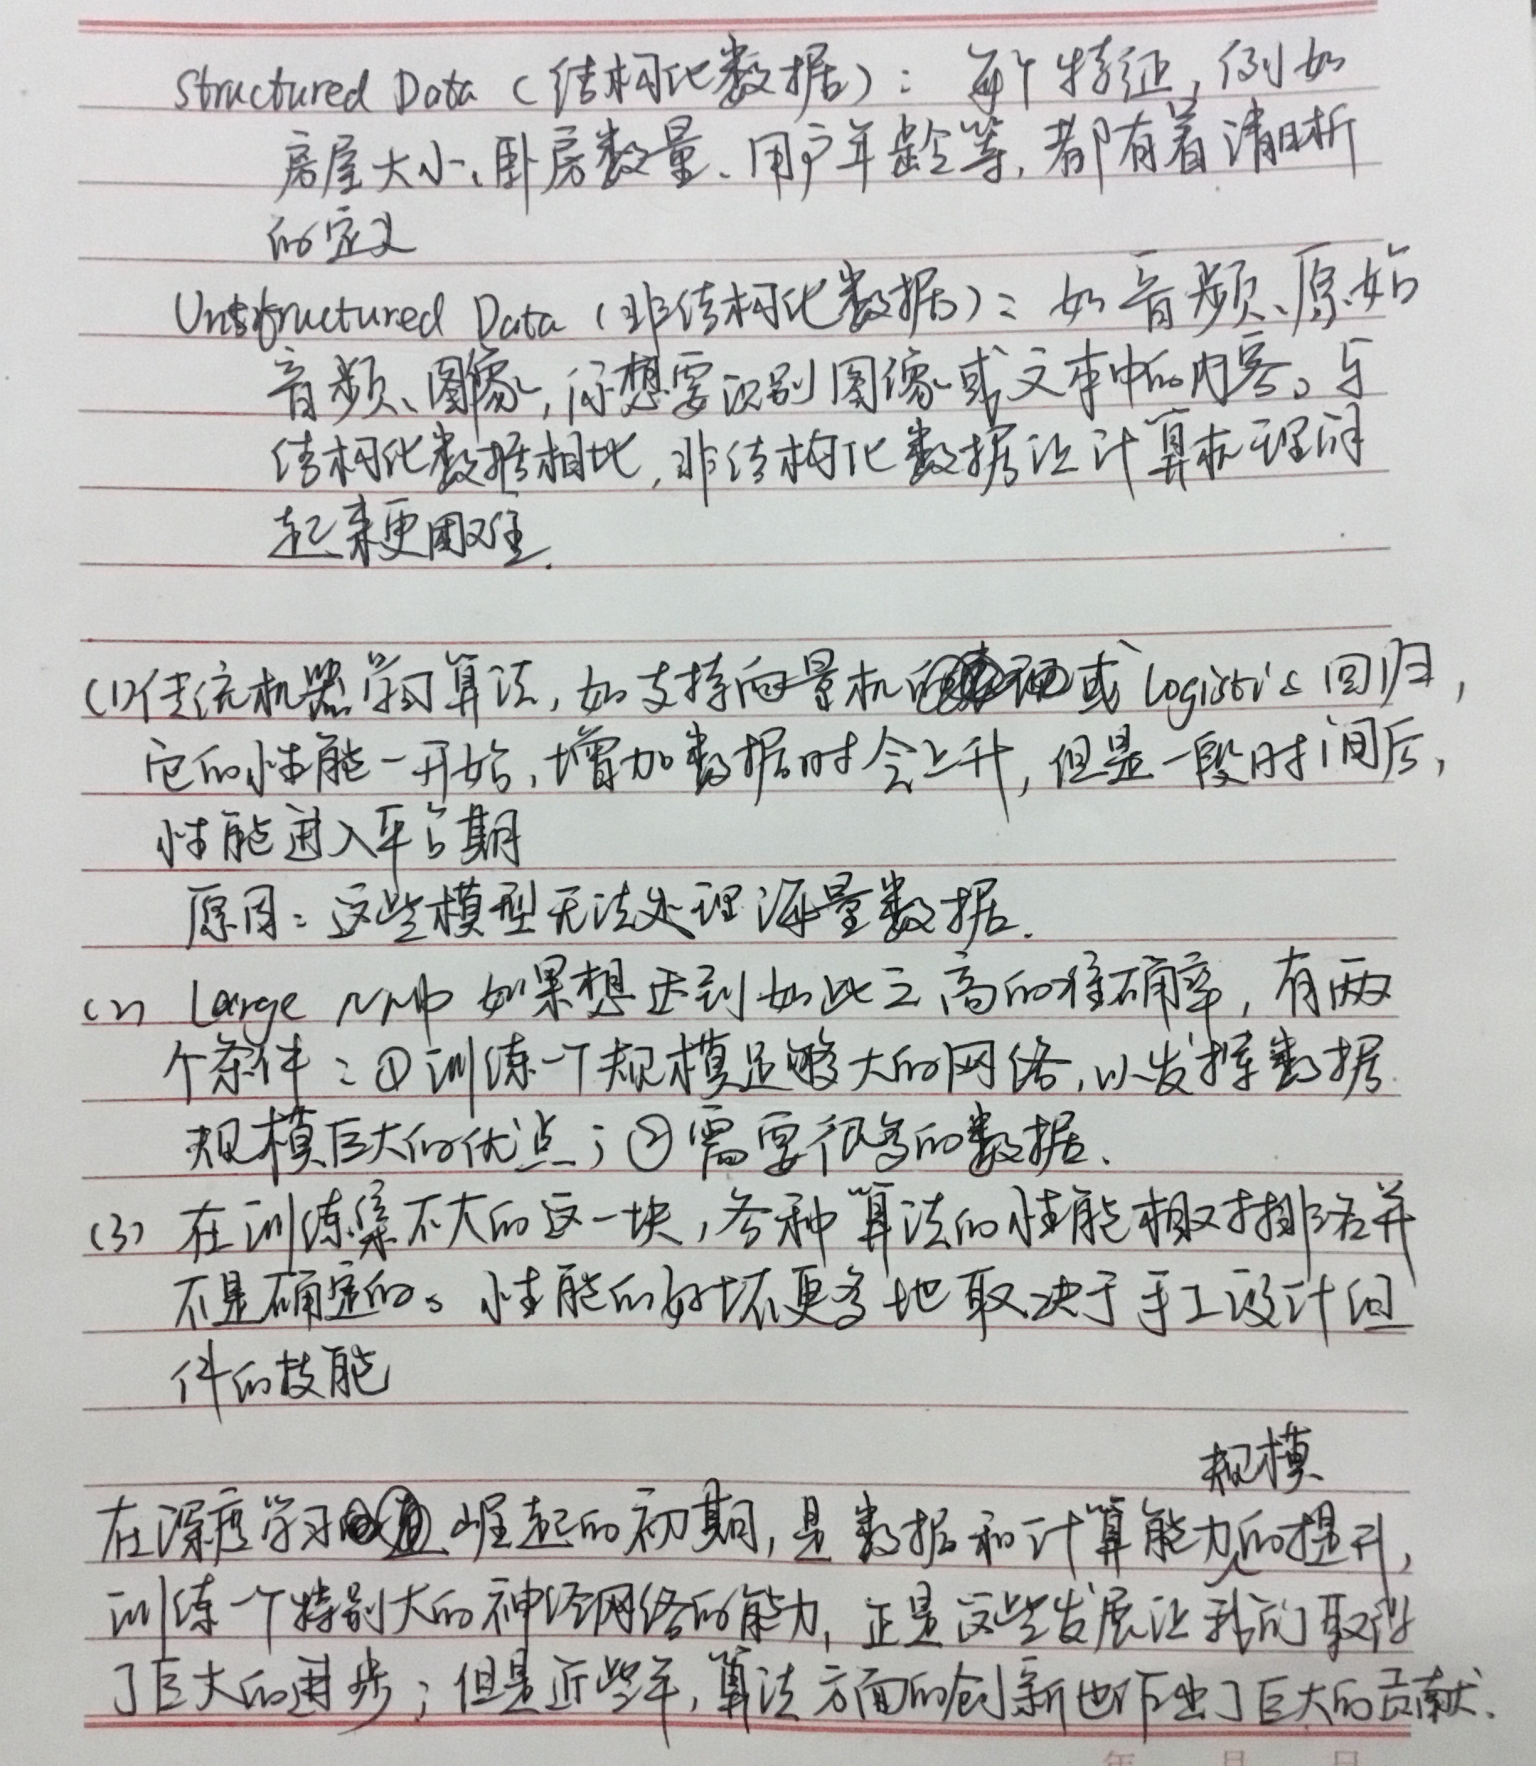 Structured Data（结构化数据）：每个特征，例如
房屋大小、卧房数量、用户年龄等，都有着清晰
的定义
Unstructured Data（非结构化数据）：如音频、原始
音频、图像，你想要识别图像或文本中的内容。与
结构化数据相比，非结构化数据让计算机理解
起来更困难.
(1)传统机器学习算法，如支持向量机或 Logistic 回归，
它的性能一开始，增加数据时会上升，但是一段时间后，
性能进入平台期
原因：这些模型无法处理海量数据.
(2) Large NN中 如果想达到如此之高的准确率，有两
个条件：①训练一个规模足够大的网络，以发挥数据
规模巨大的优点；②需要很多的数据.
(3) 在训练集不大的这一块，各种算法的性能相对排名并
不是确定的。性能的好坏更多地取决于手工设计组
件的技能
规模
在深度学习崛起的初期，是数据和计算能力的提升，
训练一个特别大的神经网络的能力，正是这些发展让我们取得
了巨大的进步；但是近些年，算法方面的创新也作出了巨大的贡献.
年 月 日